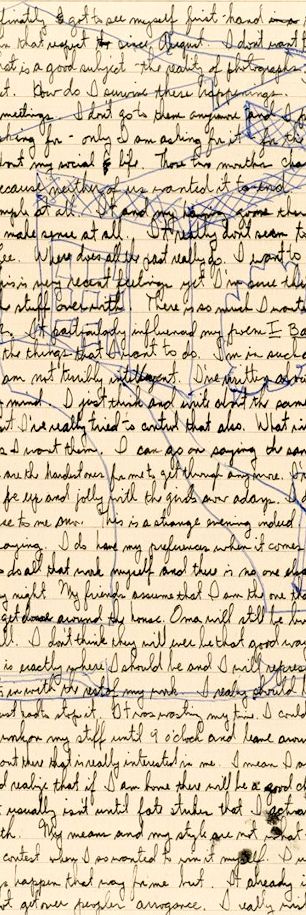 finally I got to see myself first hand in a
in that respect since August. I don't want t
hat is a good subject - the reality of photographs
t. How do I survive these happenings.
meetings. I don't go to them anymore and I
king for - only I am asking for it. for th
out my social life. Those two months cha
ecause neither of us wanted it to end
mple at all. It and my some tha
make sense at all. It really don't seem to
ee. Where does all the past really go. I want to
is is very recent feelings yet I'm sure the
e stuff over with. There is so much I want
It particularly influenced my poem I Ba
the things that I want to do. I'm in such
am not terribly intelligent. I've written abo
mind. I just think and write about the same
ut I've really tried to control that also. What
s I want them. I can go on saying the sam
are the hardest ones for me to get through anymore.
be up and jolly with the guests over adays. I
se to me This is a strange evening indeed
oaying. I do have my preferences when it comes
do all that work myself and there is no one els
y night. My friends assume that I am the one tha
get around the house. Oma will still be
ll. I don't think they will ever be that good
is exactly where I should be and I will repres
in with the rest of my work. I really should b
ust to stop it. It was wasting my time. I could
work on my stuff until 9 o'clock and leave arou
out there that is really interested in me. I mean I a
d realize that if I am home there will be a good ch
t usually isn't until fate strikes that I actua
th. My means and my style are not what
contest when I so wanted to win it myself. I
s happen that way for me but. It already
ot get over peoples arrogance. I really